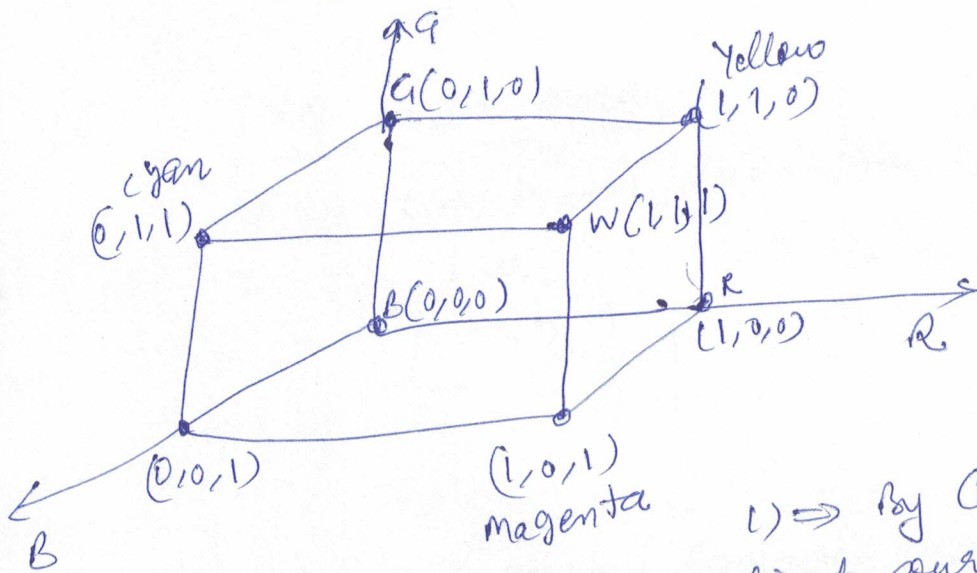 G
Yellow
G(0,1,0)
(1,1,0)
Cyan
(0,1,1)
W(1,1,1)
B(0,0,0)
R
(1,0,0)
R
(0,0,1)
(1,0,1)
Magenta
B
1) ⇒ By